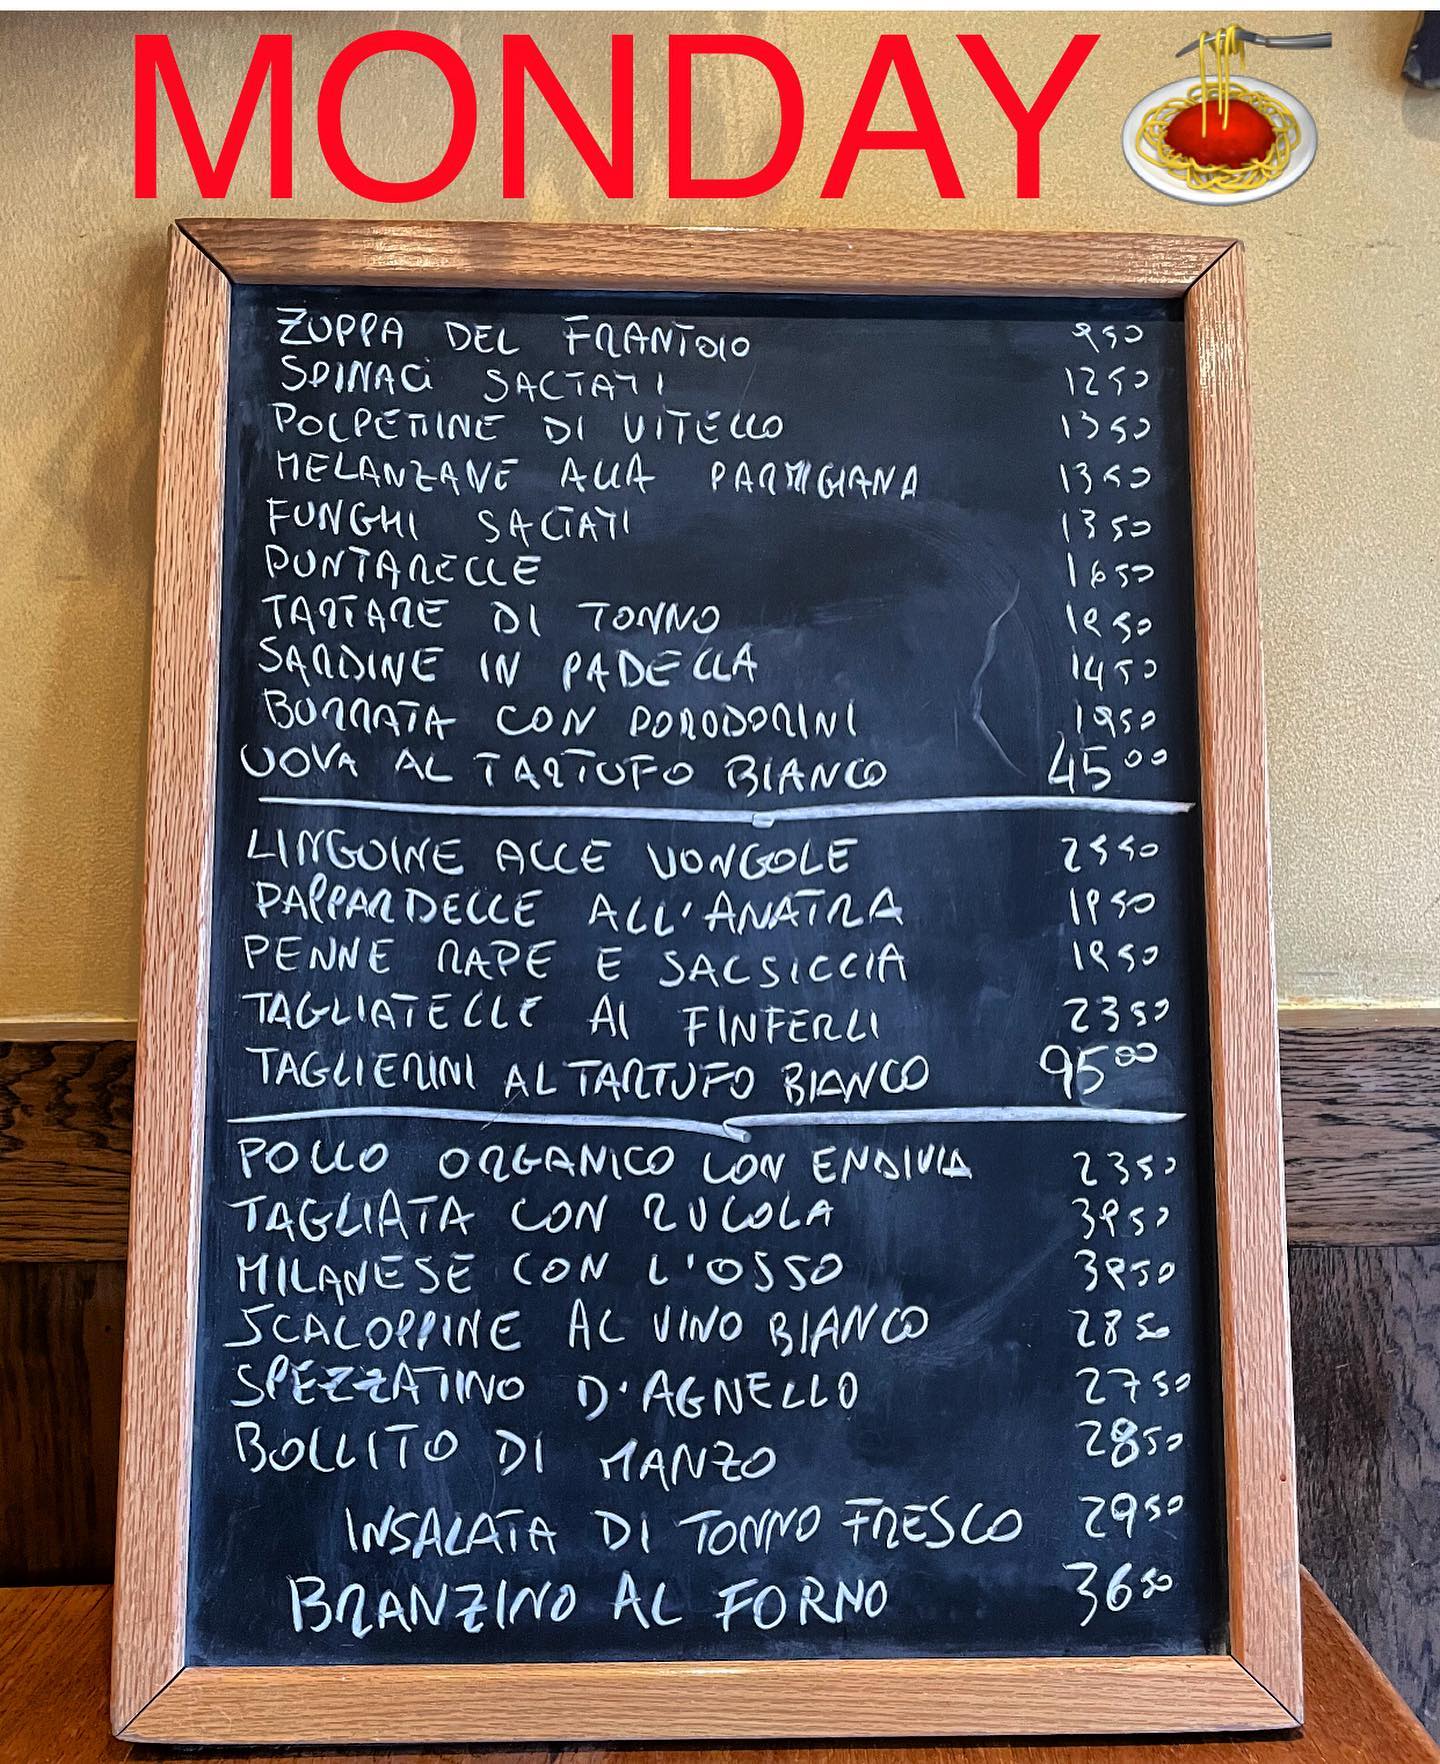 MONDAY
ZUPPA DEL FRANTOIO 950
SPINACI SALTATI 1250
POLPETTINE DI VITELLO 1350
MELANZANE ALLA PARMIGIANA 1350
FUNGHI SALTATI 1350
PUNTARELLE 1650
TARTARE DI TONNO
SARDINE IN PADELLA 1450
BURRATA CON POMODORINI 1950
UOVA AL TARTUFO BIANCO 4500
LINGUINE ALLE VONGOLE 2550
PAPPARDELLE ALL'ANATRA
PENNE RAPE E SALSICCIA
TAGLIATELLE AI FINFERLI 2350
TAGLIERINI AL TARTUFO BIANCO 9500
POLLO ORGANICO CON ENDIVIA 2350
TAGLIATA CON RUCOLA
MILANESE CON L'OSSO
SCALOPPINE AL VINO BIANCO 2850
SPEZZATINO D'AGNELLO 2750
BOLLITO DI MANZO 2850
INSALATA DI TONNO FRESCO 2950
BRANZINO AL FORNO 3650